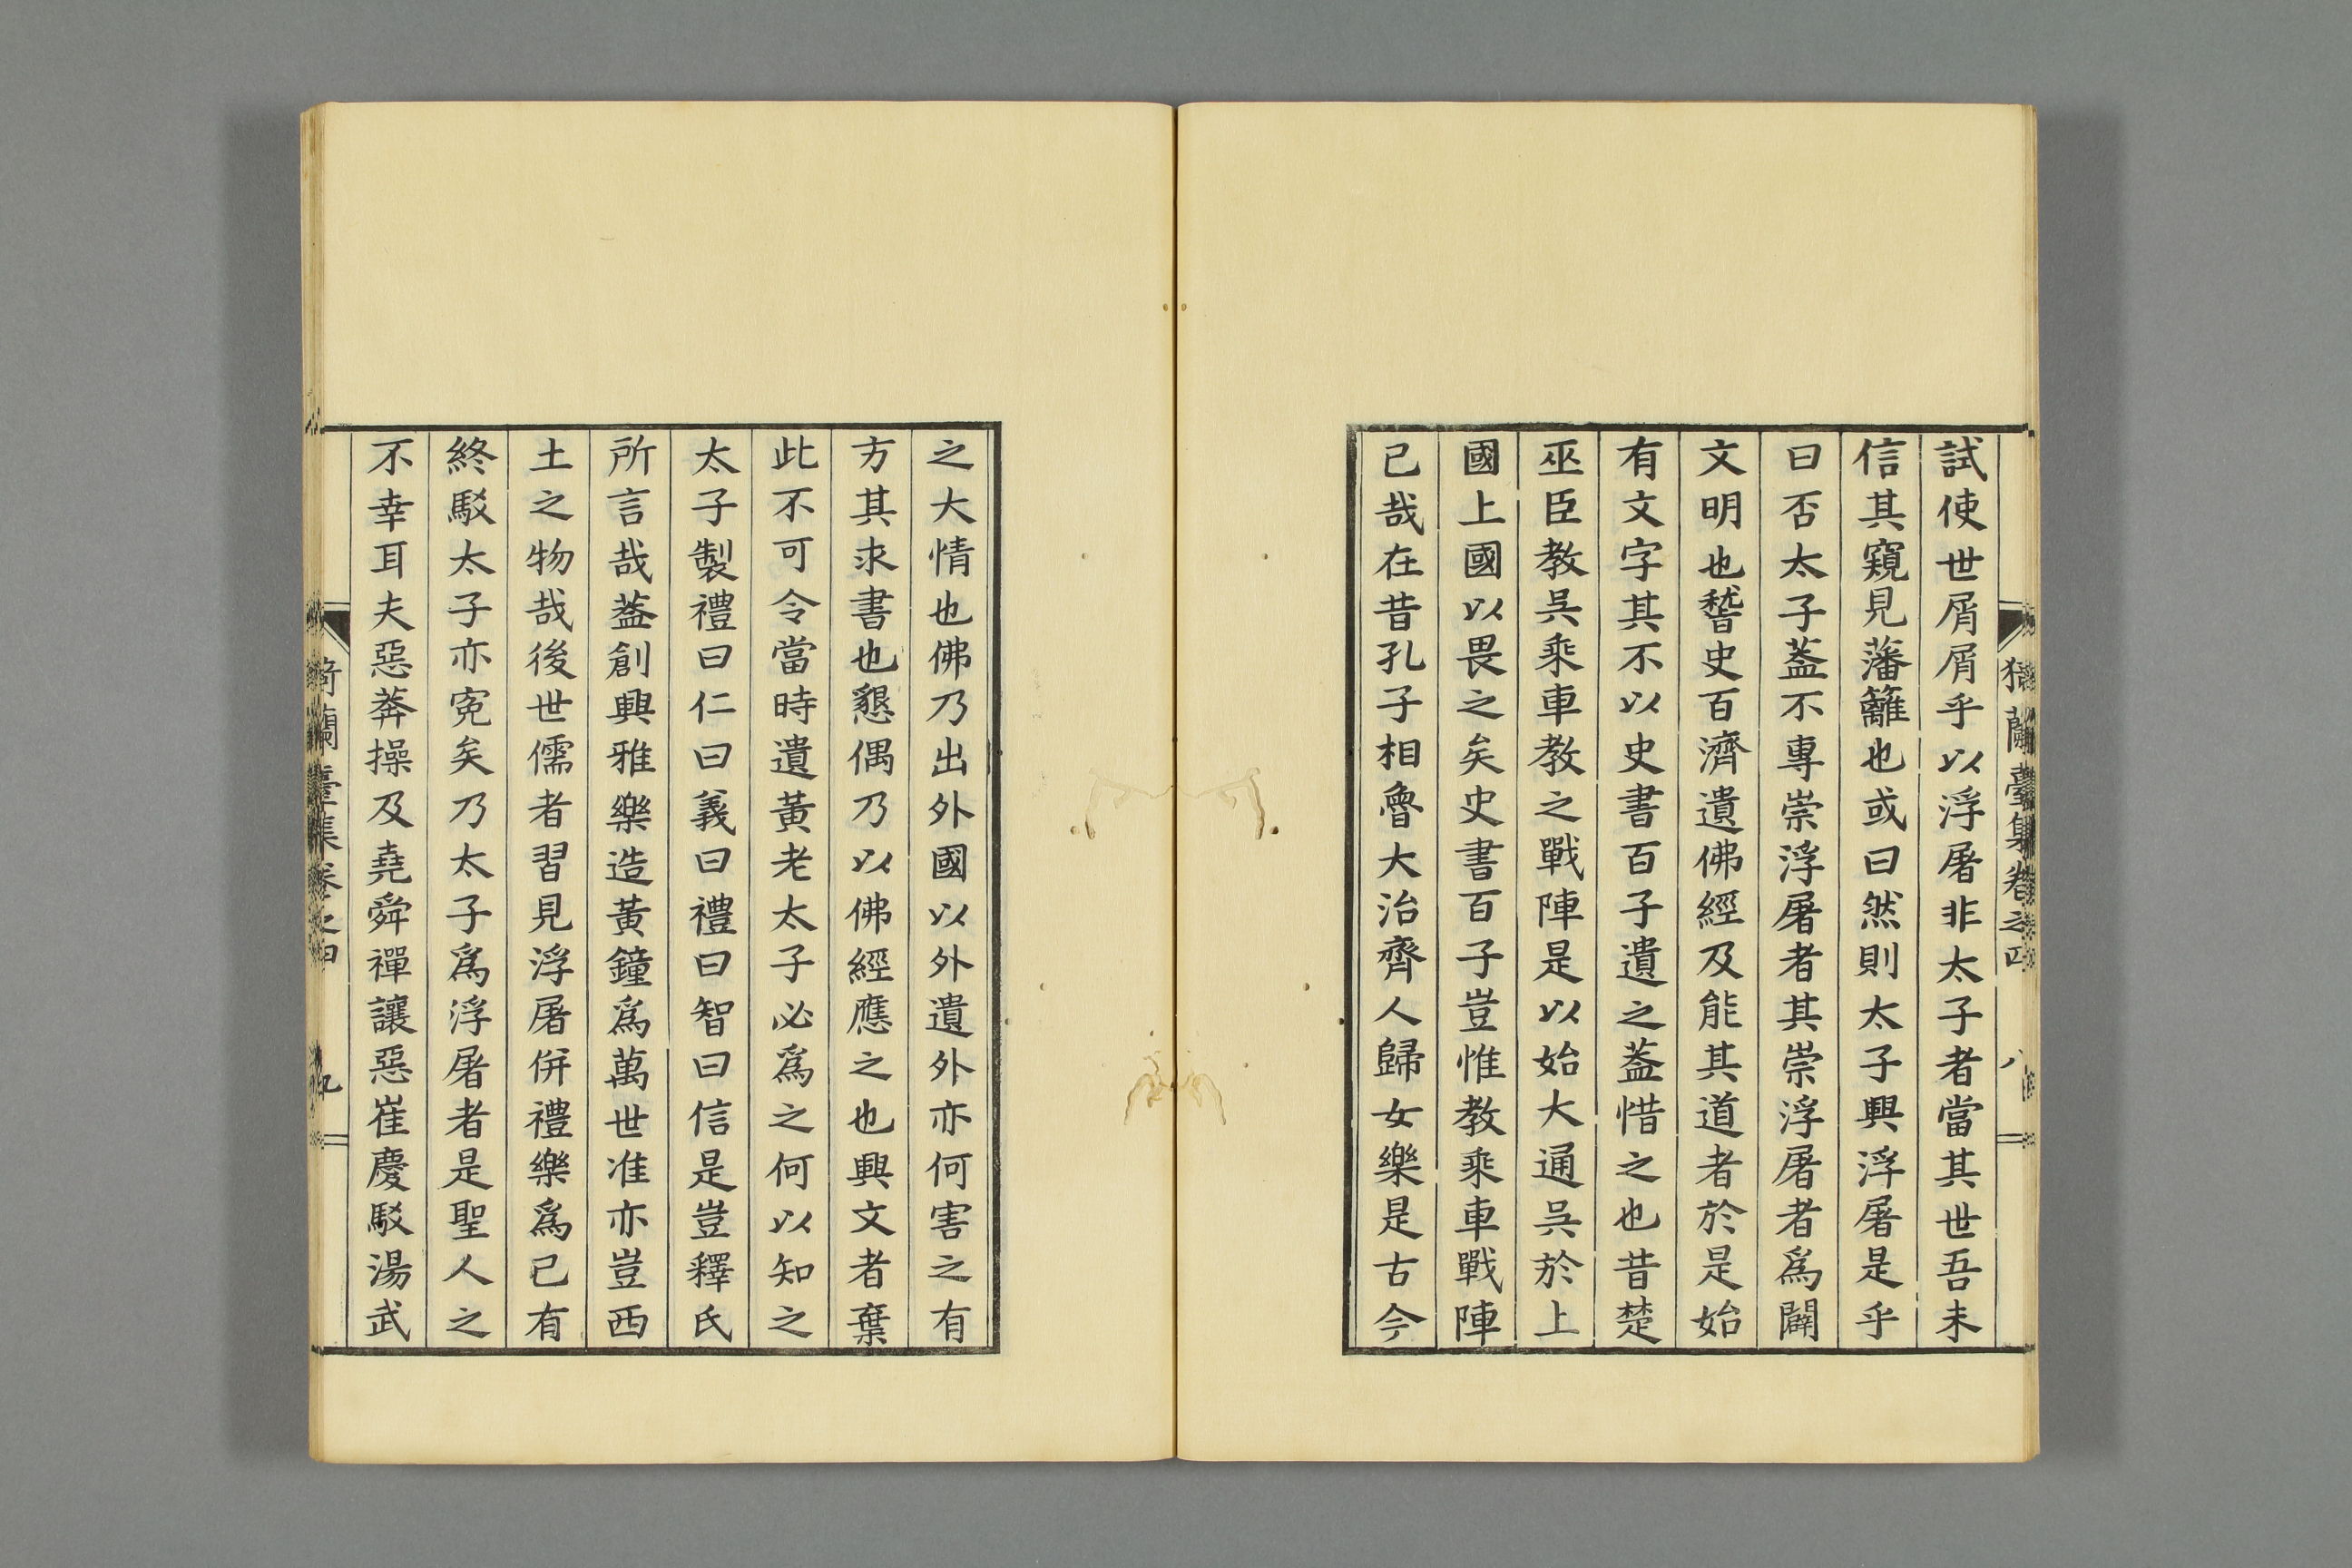 試使世屑屑乎以浮屠非太子者當其世吾未
信其窺見藩籬也或曰然則太子興浮屠是乎
曰否太子蓋不專崇浮屠者其崇浮屠者爲闢
文明也嘗史百濟遺佛經及能其道者於是始
有文字其不以史書百子遺之蓋惜之也昔楚
巫臣教吳乘車教之戰陣是以始大通吳於上
國上國以畏之矣史書百子豈惟教乘車戰陣
已哉在昔孔子相魯大治齊人歸女樂是古今
之大情也佛乃出外國以外遺外亦何害之有
方其求書也懇偶乃以佛經應之也興文者棄
此不可令當時遺黃老太子必爲之何以知之
太子製禮曰仁曰義曰禮曰智曰信是豈釋氏
所言哉蓋創興雅樂造黃鐘爲萬世准亦豈西
土之物哉後世儒者習見浮屠併禮樂爲已有
終駁太子亦冤矣乃太子爲浮屠者是聖人之
不幸耳夫惡莽操及堯舜禪讓惡崔慶駁湯武
蘭臺集卷之四
九